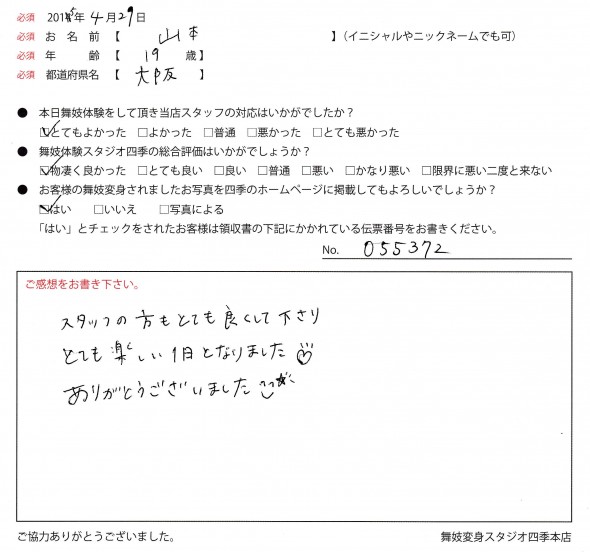 必須 2015年 4月29日
必須 お名前【 山本 】(イニシャルやニックネームでも可)
必須 年齢【 19 歳】
必須 都道府県名【 大阪 】
● 本日舞妓体験をして頂き当店スタッフの対応はいかがでしたか?
☑とてもよかった □よかった □普通 □悪かった □とても悪かった
● 舞妓体験スタジオ四季の総合評価はいかがでしょうか?
☑物凄く良かった □とても良い □良い □普通 □悪い □かなり悪い □限界に悪い二度と来ない
● お客様の舞妓変身されましたお写真を四季のホームページに掲載してもよろしいでしょうか?
☑はい □いいえ □写真による
「はい」とチェックをされたお客様は領収書の下記にかかれている伝票番号をお書きください。
No. 055372
ご感想をお書き下さい。
スタッフの方もとても良くして下さり
とても楽しい1日となりました
ありがとうございました
ご協力ありがとうございました。 舞妓変身スタジオ四季本店